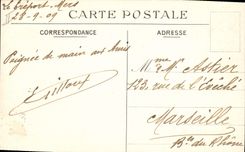 Le Tréport-Mers
28-9-09
CARTE POSTALE
CORRESPONDANCE
ADRESSE
Poignée de main aux amis
Mme Mlle Astier
123 rue de l'Evêché
Marseille
Bches du Rhône